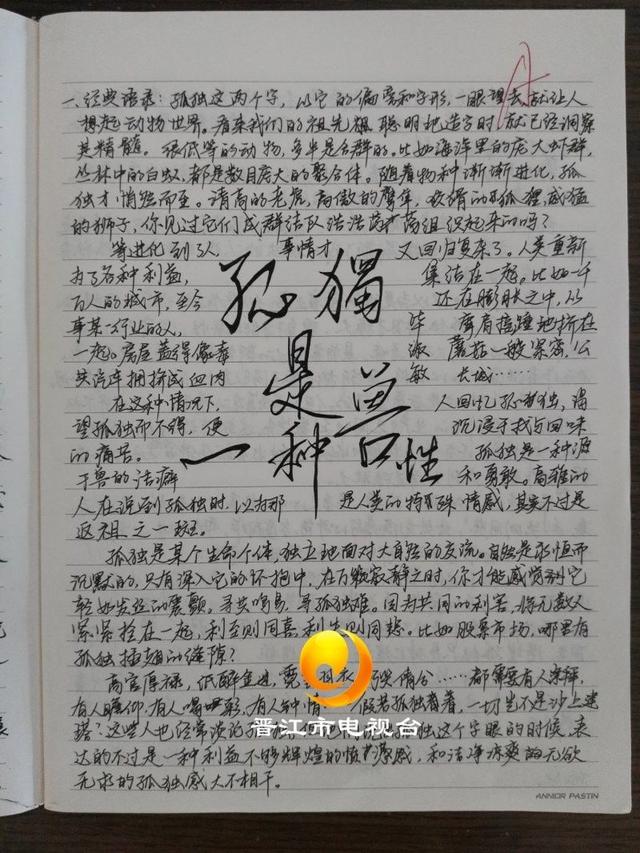 一、经典语录：孤独这两个字，从它的偏旁和字形，一眼望去，就让人
想起动物世界。看来我们的祖先很聪明地造字时就已经洞察
其精髓。很低等的动物，多半是合群的。比如海洋里的庞大虾群，
丛林中的白蚁，都是数目庞大的聚合体。随着物种渐渐进化，孤
独才悄然而至。清高的老虎，高傲的鹰隼，狡猾的狐狸，威猛
的狮子，你见过它们成群结队浩浩荡荡组织起来的吗？
等进化到了人 事情才 又回归复杂了。人类重新
为了各种利益， 集结在一起。比如一千
万人的城市，至今 还在膨胀之中，从
事某一行业的人， 摩肩接踵地挤在
一起。房屋盖得像 蘑菇一般紧密，公
共汽车拥挤成血肉 长城……
在这种情况下， 人回忆孤独，渴
望孤独而不得，便 沉浸于找与回味
的痛苦。 孤独是一种源
于兽的洁癖 和勇敢。高雅的
人在说到孤独时，以为那 是人类的特殊情感，其实不过是
返祖之一斑。
孤独
是
一种兽性
毕
淑
敏
孤独是某个生命个体，独立地面对大自然的交流。自然是永恒而
沉默的，只有深入它的怀抱中，在万籁寂静之时，你才能感觉到它
轻如发丝的震颤。寻共鸣易，寻孤独难。因为共同的利害，将无数人
紧紧拴在一起，利至则同喜，利失则同悲。比如股票市场，哪里有
孤独插翅的缝隙？
高官厚禄，纸醉金迷， 羽衣 情合……都需要有人崇拜，
有人瞻仰，有人喝彩，有人钟情。 假若孤独着看，一切岂不是沙上建
塔？这些人也经常谈论孤独， 孤独这个字眼的时候，表
达的不过是一种利益不够辉煌的愤 感，和洁净凉爽的无欲
无求的孤独感大不相干。
晋江市电视台
ANNIOR PASTIN